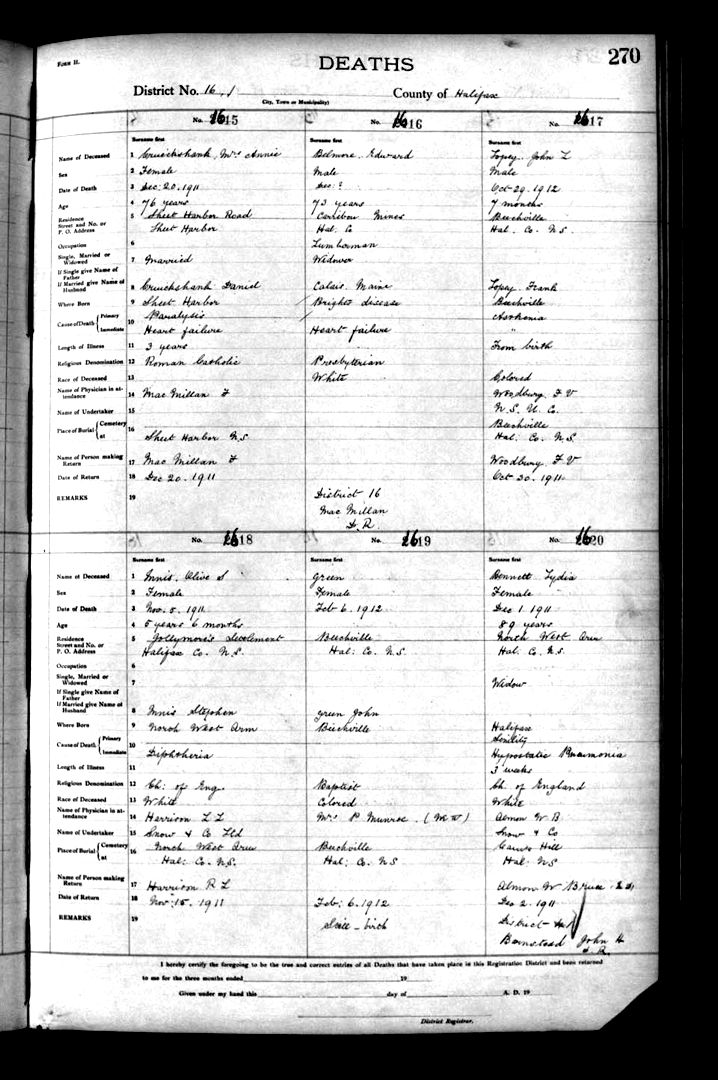 FORM H.
DEATHS
270
District No. 16.1 County of Halifax
City, Town or Municipality)
No. 1615 No. 1616 No. 1617
Surname first Surname first Surname first
Name of Deceased 1 Cruickshank, Mrs Annie Belmore, Edward Lopey, John L
Sex 2 Female Male Male
Date of Death 3 Dec. 20. 1911 Dec: ? Oct 29. 1912
Age 4 76 years 73 years 7 months
Residence Street and No. or P. O. Address 5 Sheet Harbor Road Carribou Mines Beechville
Sheet Harbor Hal. Co Hal. Co. N.S.
Occupation 6 Lumberman
Single, Married or Widowed 7 Married Widower
If Single give Name of Father
If Married give Name of Husband 8 Cruickshank Daniel Calais, Maine Lopey Frank
Where Born 9 Sheet Harbor Brights disease Beechville
Cause of Death { Primary Immediate 10 Paralysis
Heart failure Heart failure "
Length of Illness 11 3 years From birth
Religious Denomination 12 Roman Catholic Presbyterian
Race of Deceased 13 White Colored
Name of Physician in attendance 14 Mac Millan F Woodbury. F V
Name of Undertaker 15 N. S. U. Co.
Place of Burial { Cemetery at 16 Beechville
Sheet Harbor N.S Hal: Co. N.S.
Name of Person making Return 17 Mac Millan F Woodbury F V
Date of Return 18 Dec 20. 1911 Oct 30. 1911
REMARKS 19 District 16
Mac Millan
D. R.
No. 1618 No. 1619 No. 1620
Surname first Surname first Surname first
Name of Deceased 1 Innis. Olive S Green Bennett Lydia
Sex 2 Female Female Female
Date of Death 3 Nov. 5. 1911 Feb 6. 1912 Dec 1. 1911
Age 4 5 years 6 months 89 years
Residence Street and No. or P. O. Address 5 Jollymore's Settlement Beechville North West Arm
Halifax Co. N.S. Hal: Co. N.S Hal: Co. N.S.
Occupation 6
Single, Married or Widowed 7 Widow
If Single give Name of Father
If Married give Name of Husband 8 Innis Stephen Green John
Where Born 9 North West Arm Beechville Halifax
Cause of Death { Primary Immediate 10 Senility
Diphtheria Hypostatic Pneumonia
Length of Illness 11 3 weeks
Religious Denomination 12 Ch: of Eng. Baptist Ch. of England
Race of Deceased 13 White Colored White
Name of Physician in attendance 14 Harrison L L Mrs P Munroe. Almon W B
Name of Undertaker 15 Snow & Co Ltd Snow & Co
Place of Burial { Cemetery at 16 North West Arm Beechville Hill
Hal: Co. N.S. Hal; Co. NS Hal: NS
Name of Person making Return 17 Harrison R L Almon W Bruce
Date of Return 18 Nov. 15. 1911 Feb: 6. 1912 Dec 2. 1911
REMARKS 19 Still-birth District
Bamstead John H
D. R.
I hereby certify the foregoing to be the true and correct entries of all Deaths that have taken place in this Registration District and been returned
to me for the three months ended 19
Given under my hand this day of A. D. 19
District Registrar.